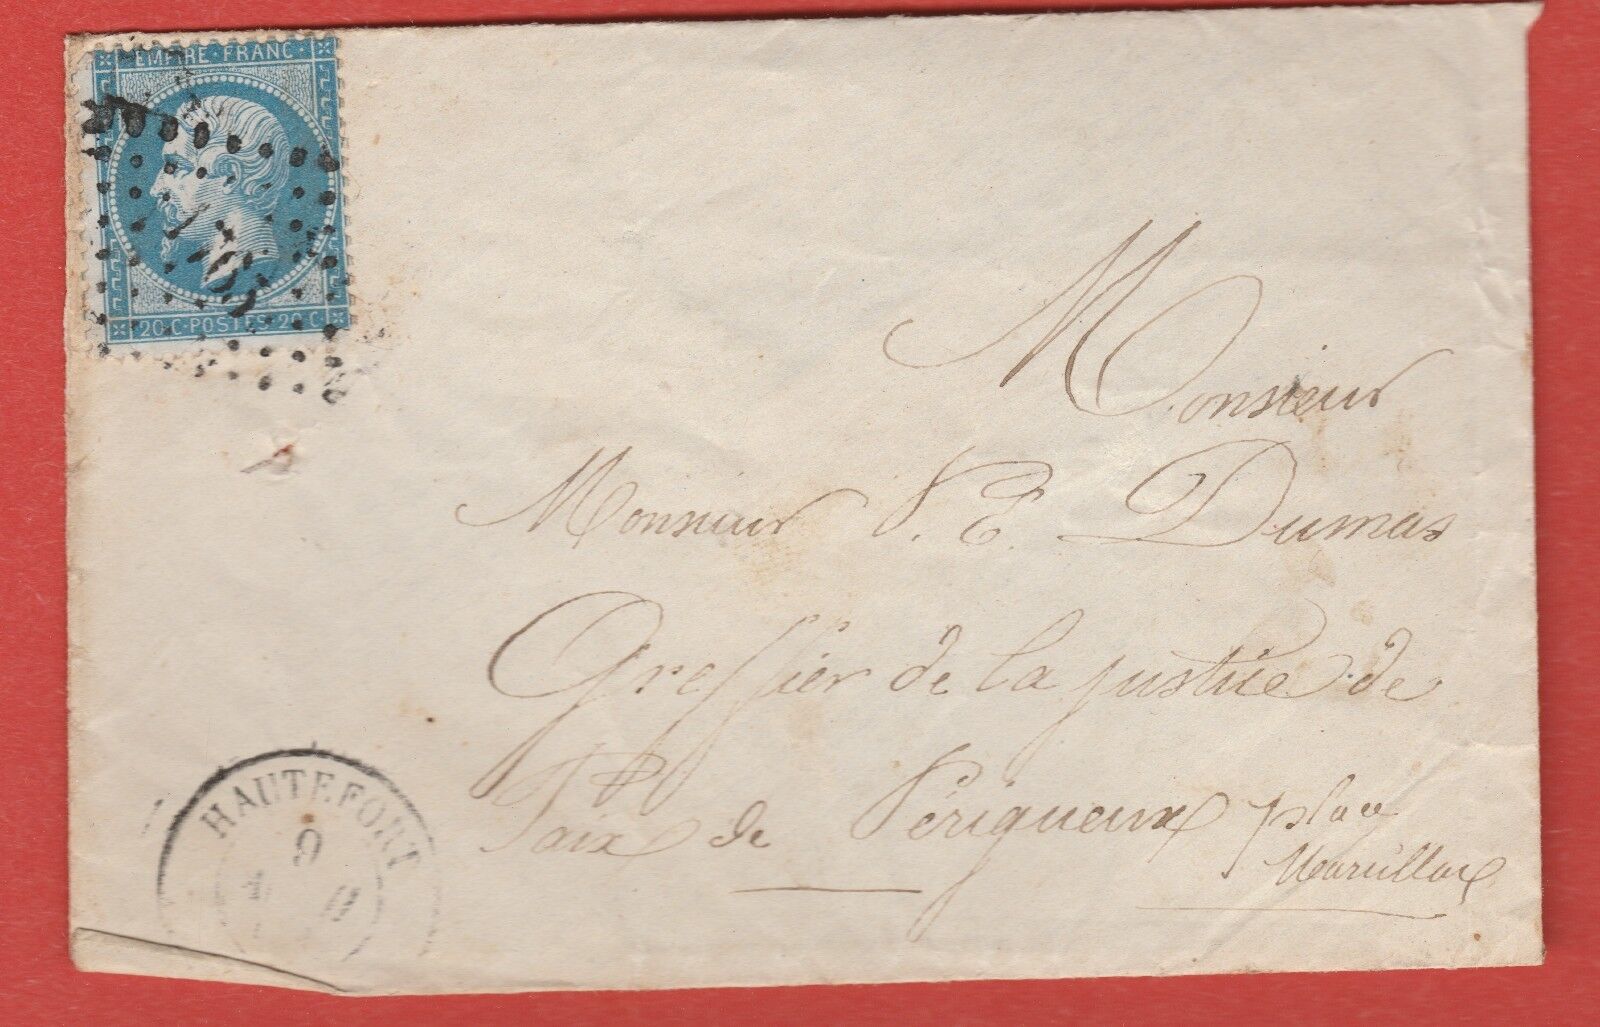 EMPIRE · FRANC ·
20·C·POSTES·20·C
Monsieur
Monsieur P. E. Dumas
Greffier de la justice de
Paix de Périgueux place
HAUTEFORT
9